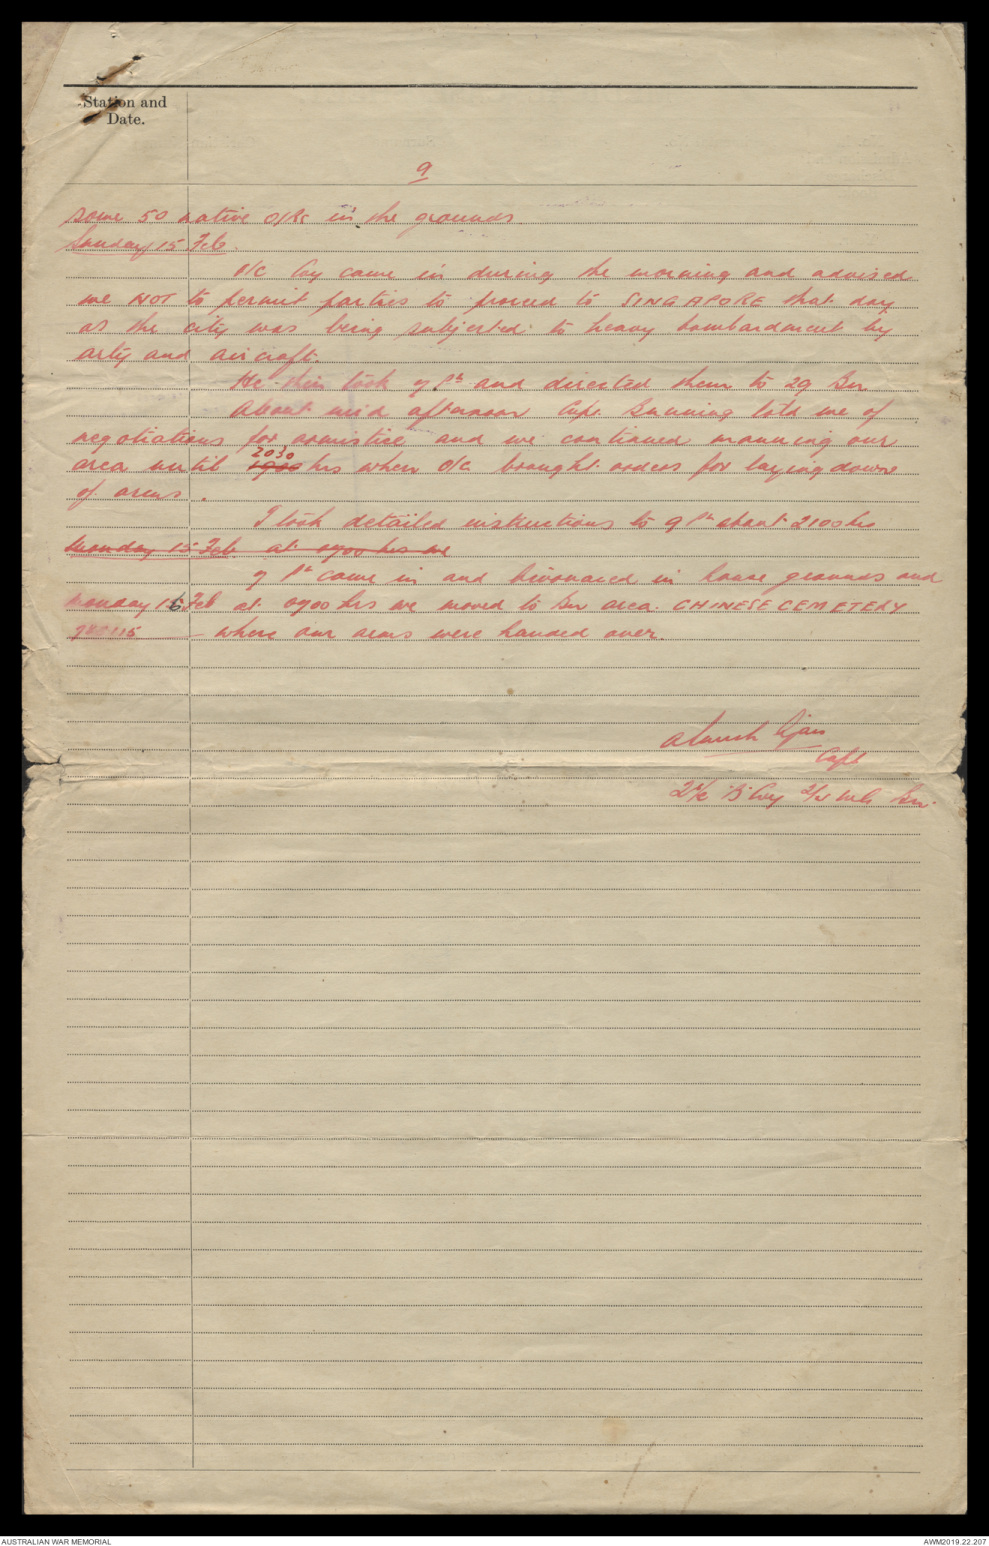 Station and
Date.
9
some 50 native O/Rs in the grounds
Sunday 15 Feb.
O/C Coy came in during the morning and advised
me NOT to permit parties to proceed to SINGAPORE that day
as the city was being subjected to heavy bombardment by
arty and aircraft.
He then took 7 Pt and directed them to 29 Bn
About mid afternoon Capt Bunning told me of
negotiations for armistice and we continued manning our
2030
area until 1900 hrs when O/C brought orders for laying down
of arms.
I took detailed instructions to 9 Pt about 2100 hrs
Monday 15 Feb. at 0700 hrs we
7 Pt came in and bivouaced in house grounds and
Monday 16 Feb at 0700 hrs we moved to Bn area. CHINESE CEMETERY
115 - where our arms were handed over.
Capt
2 i/c B Coy Bn.
AUSTRALIAN WAR MEMORIAL
AWM2019.22.207